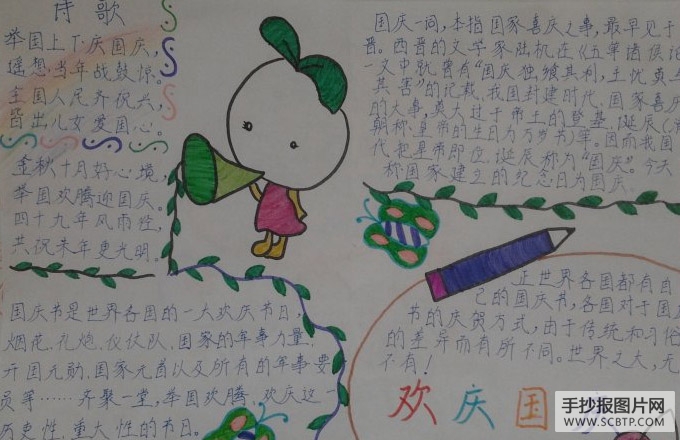 诗歌
举国上下庆国庆，
遥想当年战鼓惊。
全国人民齐祝兴，
皆出儿女爱国心。
金秋十月好心境，
举国欢腾迎国庆。
四十九年风雨程，
共祝来年更光明。
国庆一词，本指国家喜庆之事，最早见于
晋。西晋的文学家陆机在《五等诸侯论
一文中就曾有"国庆独飨其利，主忧莫与
其害"的记载，我国封建时代、国家喜庆
的大事，莫大过于帝王的登基、诞辰(清
朝称皇帝的生日为万岁节)等。因而我国
代把皇帝即位、诞辰称为"国庆"。今天
称国家建立的纪念日为国庆
国庆节是世界各国的一大欢庆节日，
烟花、礼炮、仪仗队、国家的军事力量，
开国元勋、国家元首以及所有的军事要
员等……齐聚一堂，举国欢腾，欢庆这一
历史性、重大性的节日。
在世界各国都有自
己的国庆节，各国对于国庆
节的庆贺方式，由于传统和习俗
的差异而有所不同。世界之大，无
不有！
欢庆国
手抄报图片网
WWW.SCBTP.COM